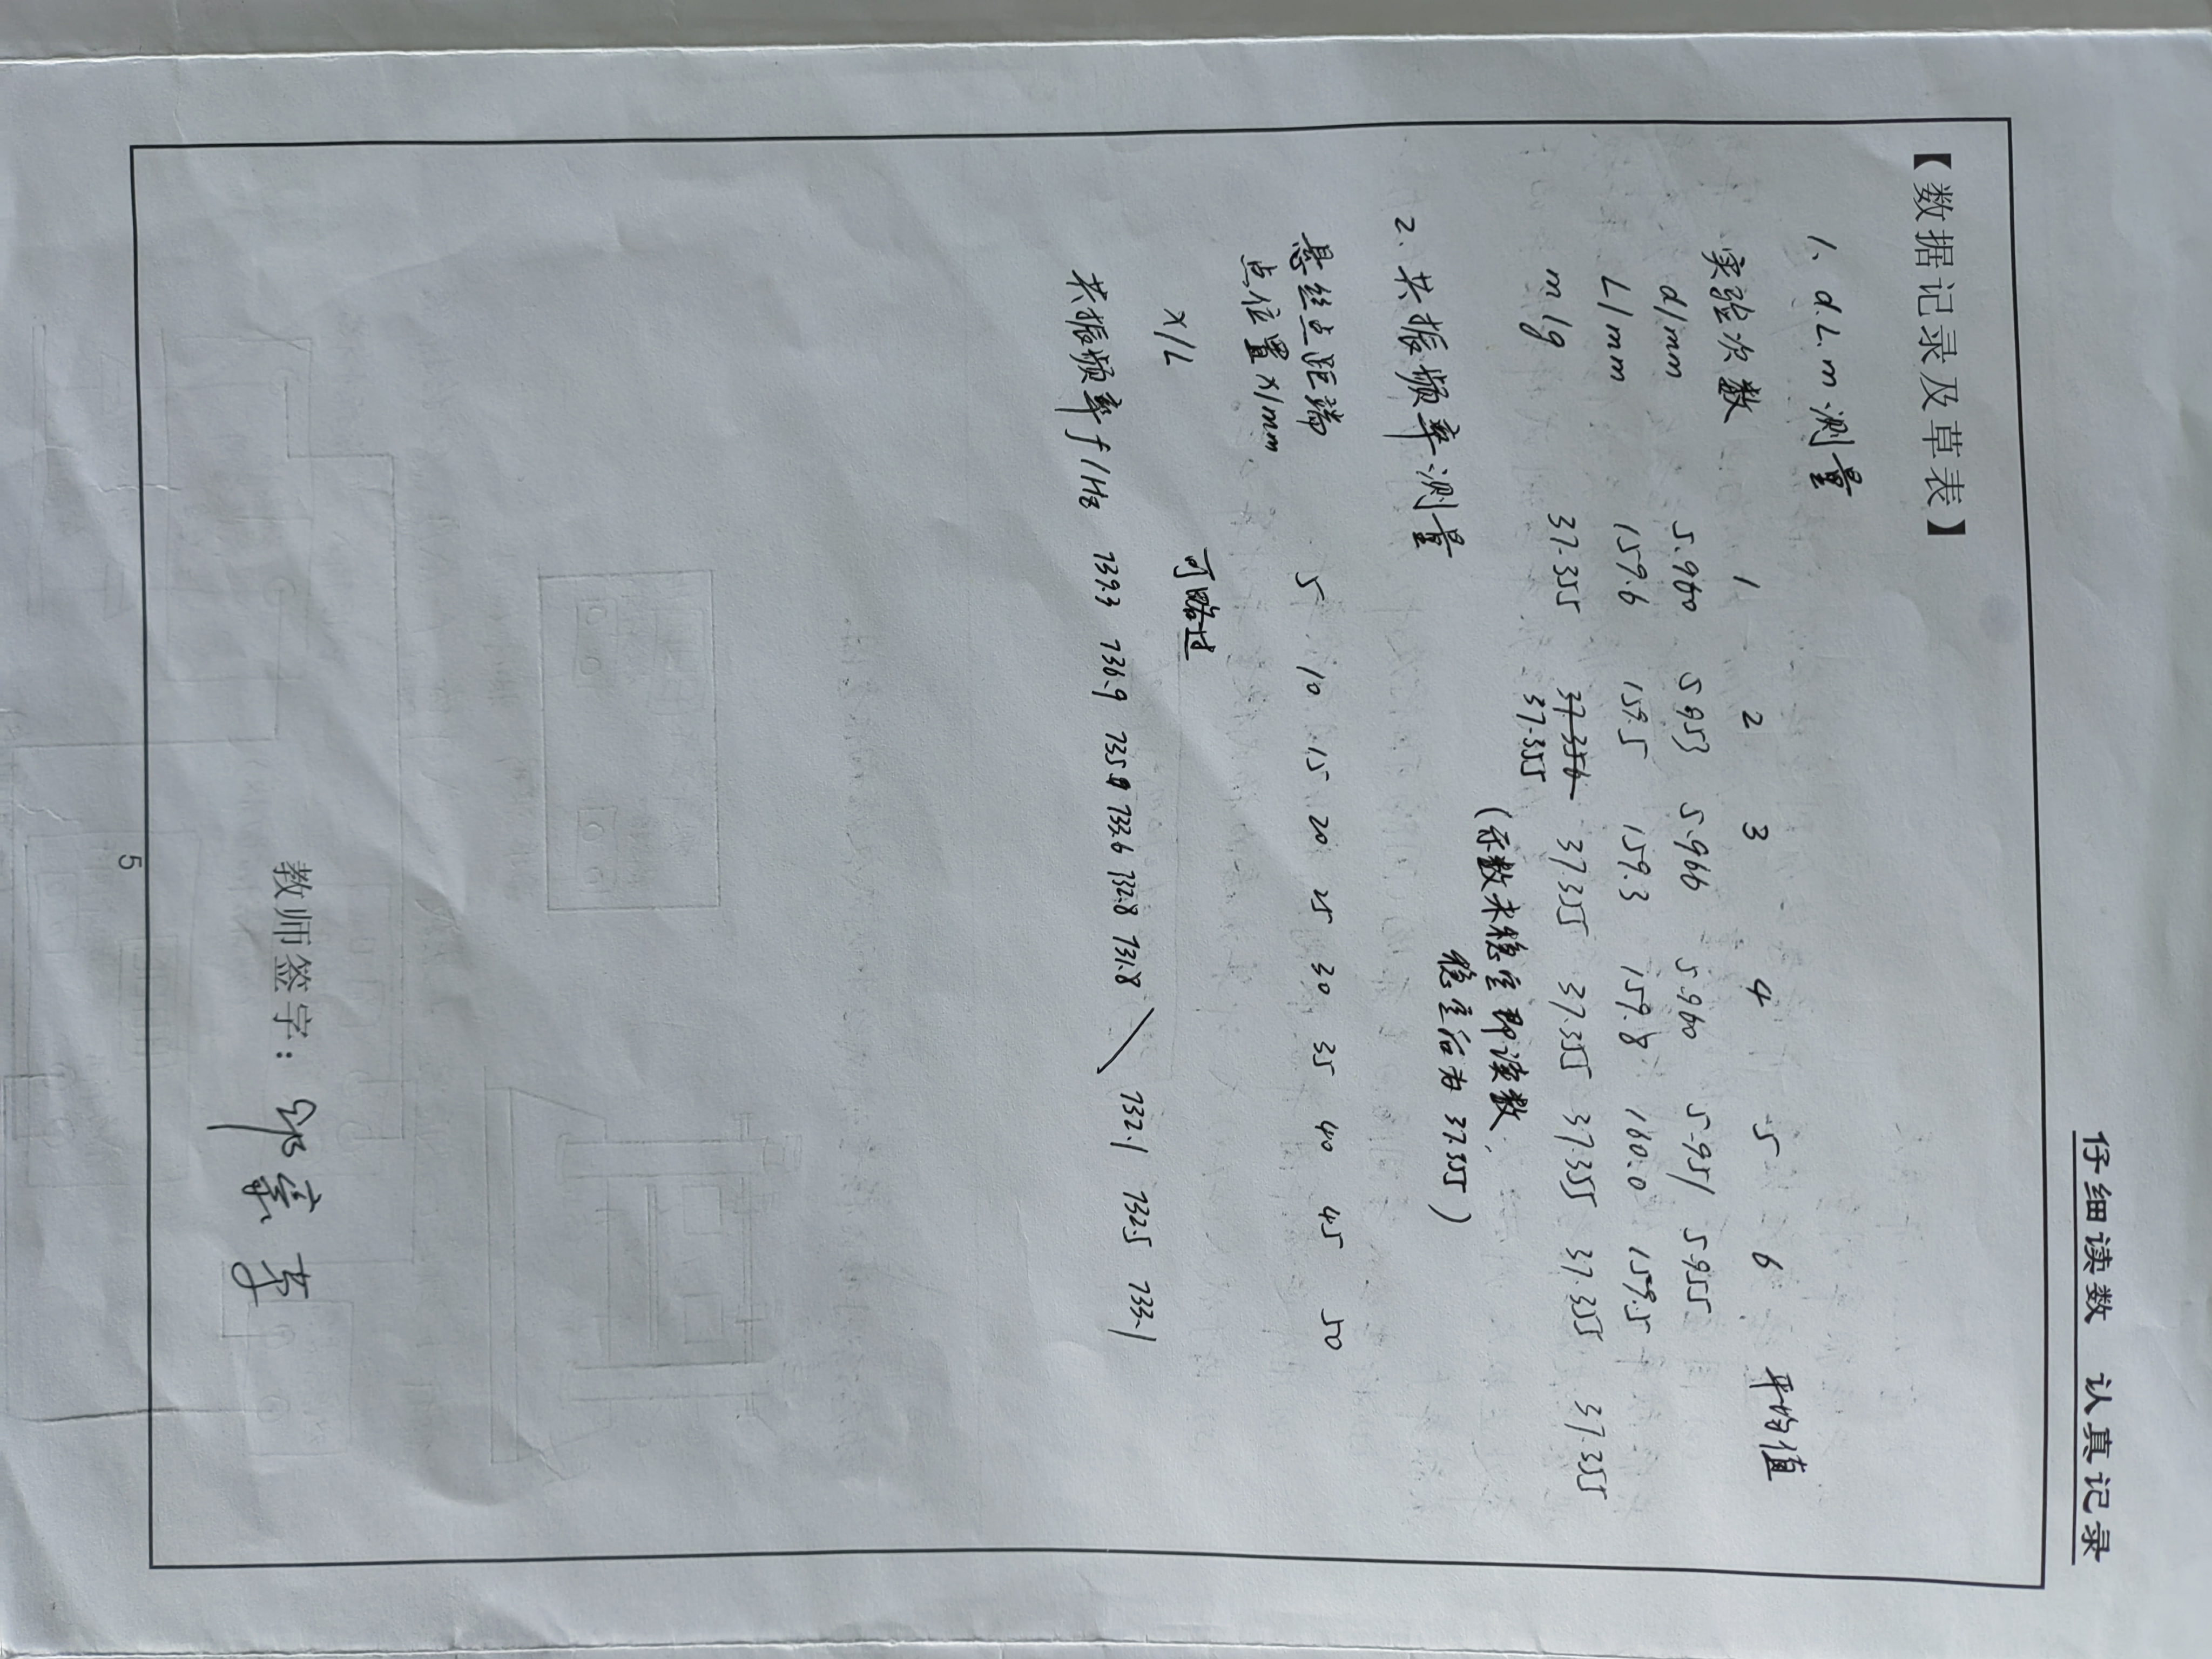 仔细读数 认真记录
【数据记录及草表】
1、d.L.m测量
实验次数 1 2 3 4 5 6 平均值
d/mm 5.960 5.953 5.966 5.960 5.951 5.955
L/mm 159.6 159.5 159.3 159.8 160.0 159.5
m/g 37.355 37.356 37.355 37.355 37.355 37.355 37.355
37.355
(示数未稳定即读数,
稳定后为 37.355)
2.共振频率测量
悬丝点距端 5 10 15 20 25 30 35 40 45 50
点位置x/mm
x/L 可略过
共振频率f/Hz 739.3 736.9 735.0 733.6 732.8 731.8 \ 732.1 732.5 733.1
教师签字:
5